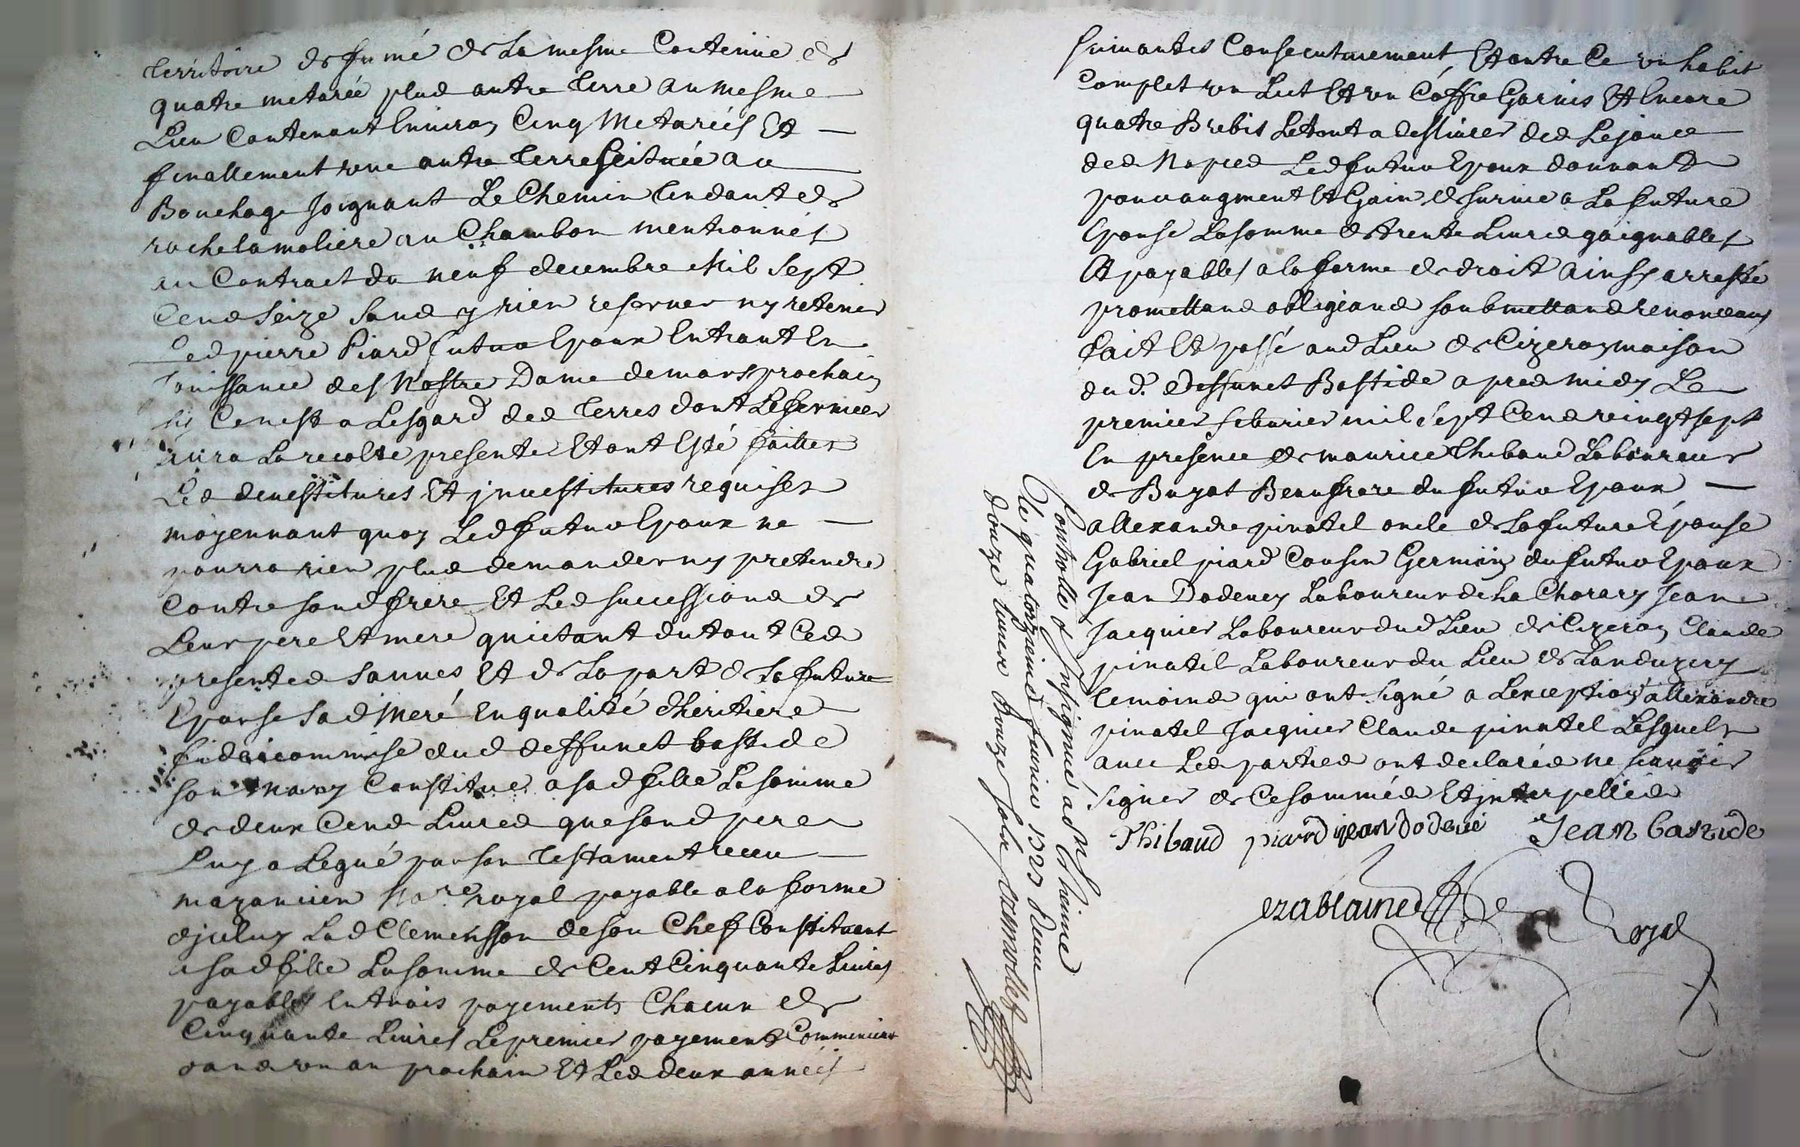 territoire de fumé de la mesme Contenüe de
quatre metarée plus autre terre au mesme
Lieu Contenant Environ Cinq Metareés Et
finallement une autre terre scituée au
Bouchage Joignant Le Chemin tendant de
rochelamoliere au Chambon mentionnés
au Contract du neuf decembre Mil Sept
Cens seize sans y rien reserver ny retenir
Led pierre Piard futur Epoux Entrant En
Jouissance des Nostre Dame de mars prochain
Ce nest a Lesgard des terres dont Le fermier
aura La recolte presente Et ont Esté faittes
Les devestitures Et jnvestitures requises
moyennant quoy Led futur Epoux ne
pourra rien plus demander ny pretendre
Contre sond frere Et Les successions de
Leur pere Et mere quictant du tout Ces
presentes Et de La part de La future
Epouse Sad Mere En qualité d'héritiere
fideicommise dud deffunct bastide
son mary Constitue a sad fille La somme
de deux Cens Livres que sond pere
Luy a Legué par son testament receu
mazancieu No.re royal payable a la forme
djceluy Lad Clemensson de son Chef Constituant
a sad fille La somme de Cent Cinquante Livres
payables En trois payements Chacun de
Cinquante Livres Le premier payement Commencant
dans un an prochain Et Les deux années
suivantes Consecutivement, Et outre Ce un habit
complet un Lict Et un Coffre Garnis Et Encore
quatre Brebis Le tout a desliurer des Le jour
des Nopces Led futur Epoux donnant
pour augment Et Gain de survie a La future
Epouse La somme de trente Livres gaignables
Et payables a la forme de droit ainsy arresté
promettans obligeans soubmettans renonceans
fait Et passé aud Lieu de Cizeron maison
dud. deffunct Bastide apres midy Le
premier feburier mil sept Cens vingt sept
En presence de maurice Thibaud Laboureur
de Buzat Beaufrere du futur Epoux
allexandre pinatel oncle de La future Epouse
Gabriel piard Cousin Germain du futur Epoux
Jean Dodeuey Laboureur de La Chorary Jean
Jacquier Laboureur dud Lieu de Cizeron Claude
pinatel Laboureur du Lieu de Landuzery
temoins qui ont signé a Lexception d'allexandre
pinatel Jacquier Claude pinatel Lesquels
avec Les parties ont declarés ne scavoir
signer de Ce sommés Et jnterpellés
Thibaud piard jean dodeué Jean bastide
Royal
Controllé & Insinué a St Chaumé
Le quatorzieme feurier 1727 Receu
douze liures douze sols